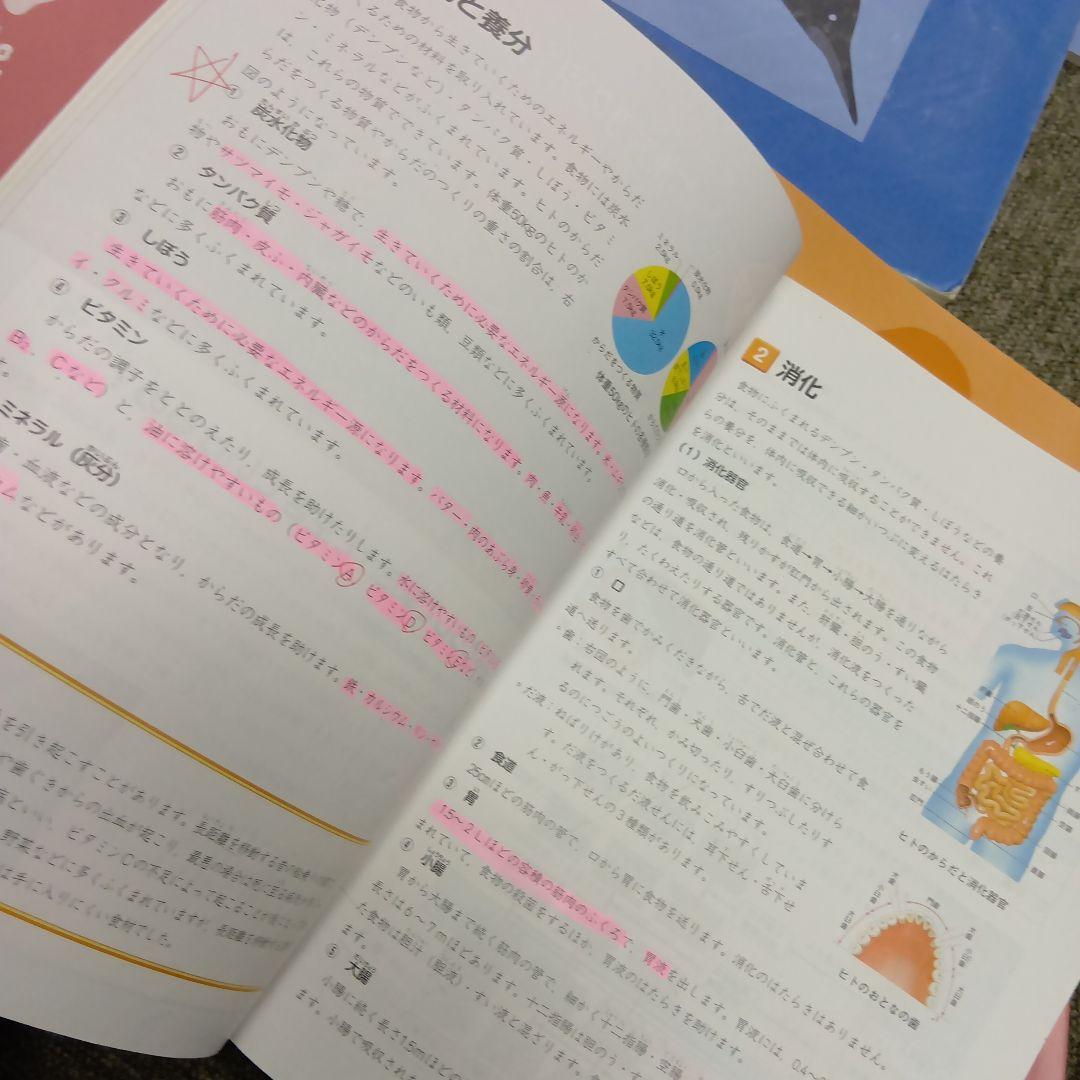 と養分
食物から生きていくためのエネルギーやからだ
くるための材料を取り入れています。食物には炭水
化物（デンプンなど）・タンパク質・しぼう・ビタミ
ン・ミネラルなどがふくまれています。ヒトのからだ
は、これらの物質でできています。体重50kgのヒトのか
らだをつくる物質やからだのつくりの重さの割合は、右
図のようになっています。
① 炭水化物
おもにデンプンや糖で、生きていくために必要なエネルギー源になります。
物やサツマイモ・ジャガイモなどのいも類、豆類などに多くふくまれています。
② タンパク質
おもに筋肉・皮ふ・内臓などのからだをつくる材料になります。肉・魚・牛乳
などに多くふくまれています。
③ しぼう
生きていくために必要なエネルギー源になります。バター・肉のあぶら身
イ・クルミなどに多くふくまれています。
④ ビタミン
からだの調子をととのえたり、成長を助けたりします。水に溶けやすいもの
B₂、Cなど）と、油に溶けやすいもの（ビタミンA ビタミンD ビタミンE
す。
ミネラル（灰分）
歯・血液などの成分となり、からだの成長を助けます。鉄・カルシウム
ムなどがあります。
を引き起こすことがあります。長距離を移動する
や歯ぐきからの出血が起こり、最悪の場合は死に至る
病といい、ビタミンCの不足によって起こる
野菜などに多くふくまれていますが、長距離を
は手に入りにくい食材でした。
ミネラル
2.5kg
炭水化物
0.5kg
しぼう
7.0kg
タンパク質
7.5kg
水
32.5kg
からだをつくる物質
体重50kgのヒトの
2 消化
食物にふくまれるデンプン・タンパク質・しぼうなどの養
分は、そのままでは体内に吸収することができません。これ
らの養分を、体内に吸収できる細かいつぶに変えるはたらき
を消化といいます。
(1) 消化器官
口から入った食物は、食道→胃→小腸→大腸を通りながら
消化・吸収され、残りかすが肛門から出されます。この食物
の通り道を消化管といいます。また、肝臓・胆のう・すい臓
などは、食物の通り道ではありませんが、消化液をつくった
り、たくわえたりする器官です。消化管と、これらの器官を
すべて合わせて消化器官といいます。
① 口
食物を歯でかみくだきながら、舌でだ液と混ぜ合わせて食
道へ送ります。
。歯：右図のように、門歯・犬歯・小臼歯・大臼歯に分けら
れます。それぞれ、かみ切ったり、すりつぶしたりす
るのにつごうのよいつくりになっています。
。だ液：ねばりけがあり、食物を飲みこみやすくしていま
す。だ液をつくるだ液せんには、耳下せん・舌下せ
ん・がっ下せんの3種類があります。
② 食道
25cmほどの筋肉の管で、口から胃に食物を送ります。消化のはたらきはありません。
③ 胃
1.5〜2Lほどの容積の筋肉のふくろで、胃液を出します。胃液には、0.4〜
まれていて、食物の殺菌をするほか、胃液のはたらきを助けます。
④ 小腸
胃から大腸まで続く筋肉の管で、細かく十二指腸・空腸
長さは6〜7mほどあります。十二指腸は胆のう・す
た食物は胆汁（胆液）・すい液と混ざります。
ます。
⑤ 大腸
小腸に続く長さ1.5mほどの
ます。小腸で吸収され
ヒトのからだと消化器官
門歯
犬歯
小臼歯
大臼歯
犬歯
小臼歯
大臼歯
ヒトのおとなの歯